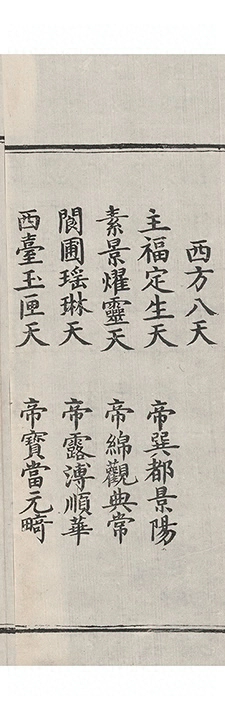 西方八天
主福定生天　帝巽都景陽
素景燿靈天　帝綿觀典常
閬圃瑶琳天　帝露溥順華
西臺玉匣天　帝寶當元畸